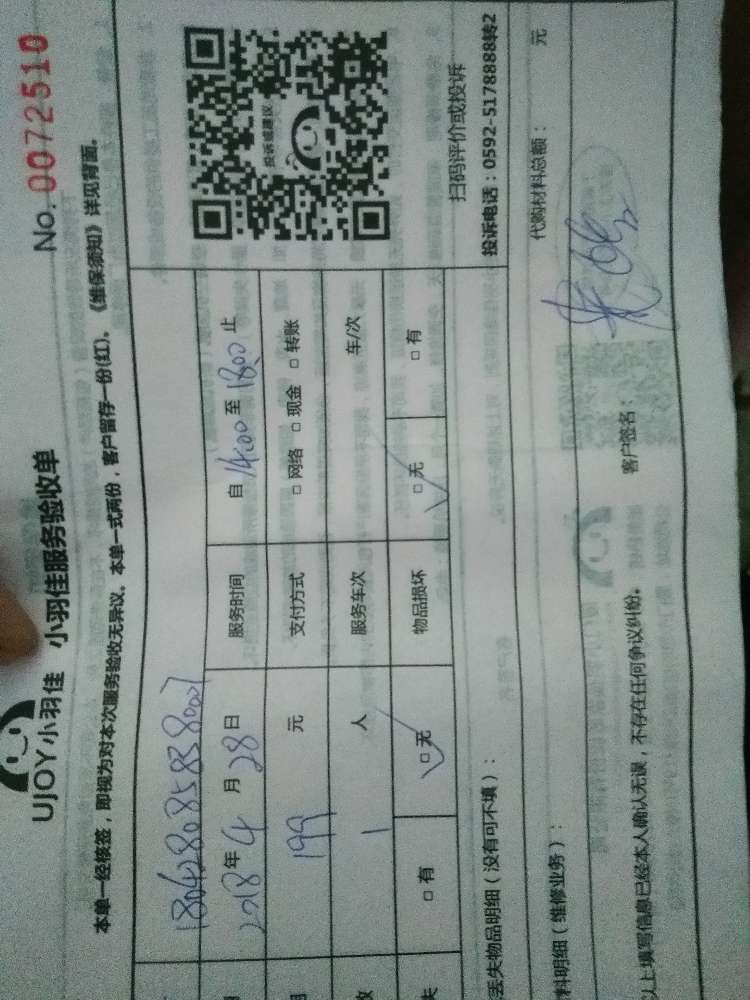 UJOY小羽佳 小羽佳服务验收单 No.0072510
本单一经核签，即视为对本次服务验收无异议。本单一式两份，客户留存一份(红)。《维保须知》详见背面。
2018年4月28日 服务时间 自14:00至18:00止
199元 支付方式 □网络 □现金 □转账
1人 服务车次 车/次
□有 □无 物品损坏 □无 □有
投诉或建议
扫码评价或投诉
投诉电话：0592-5178888转2
丢失物品明细（没有可不填）：
料明细（维修业务）： 代购材料总额： 元
以上填写信息已经本人确认无误，不存在任何争议纠纷。 客户签名：